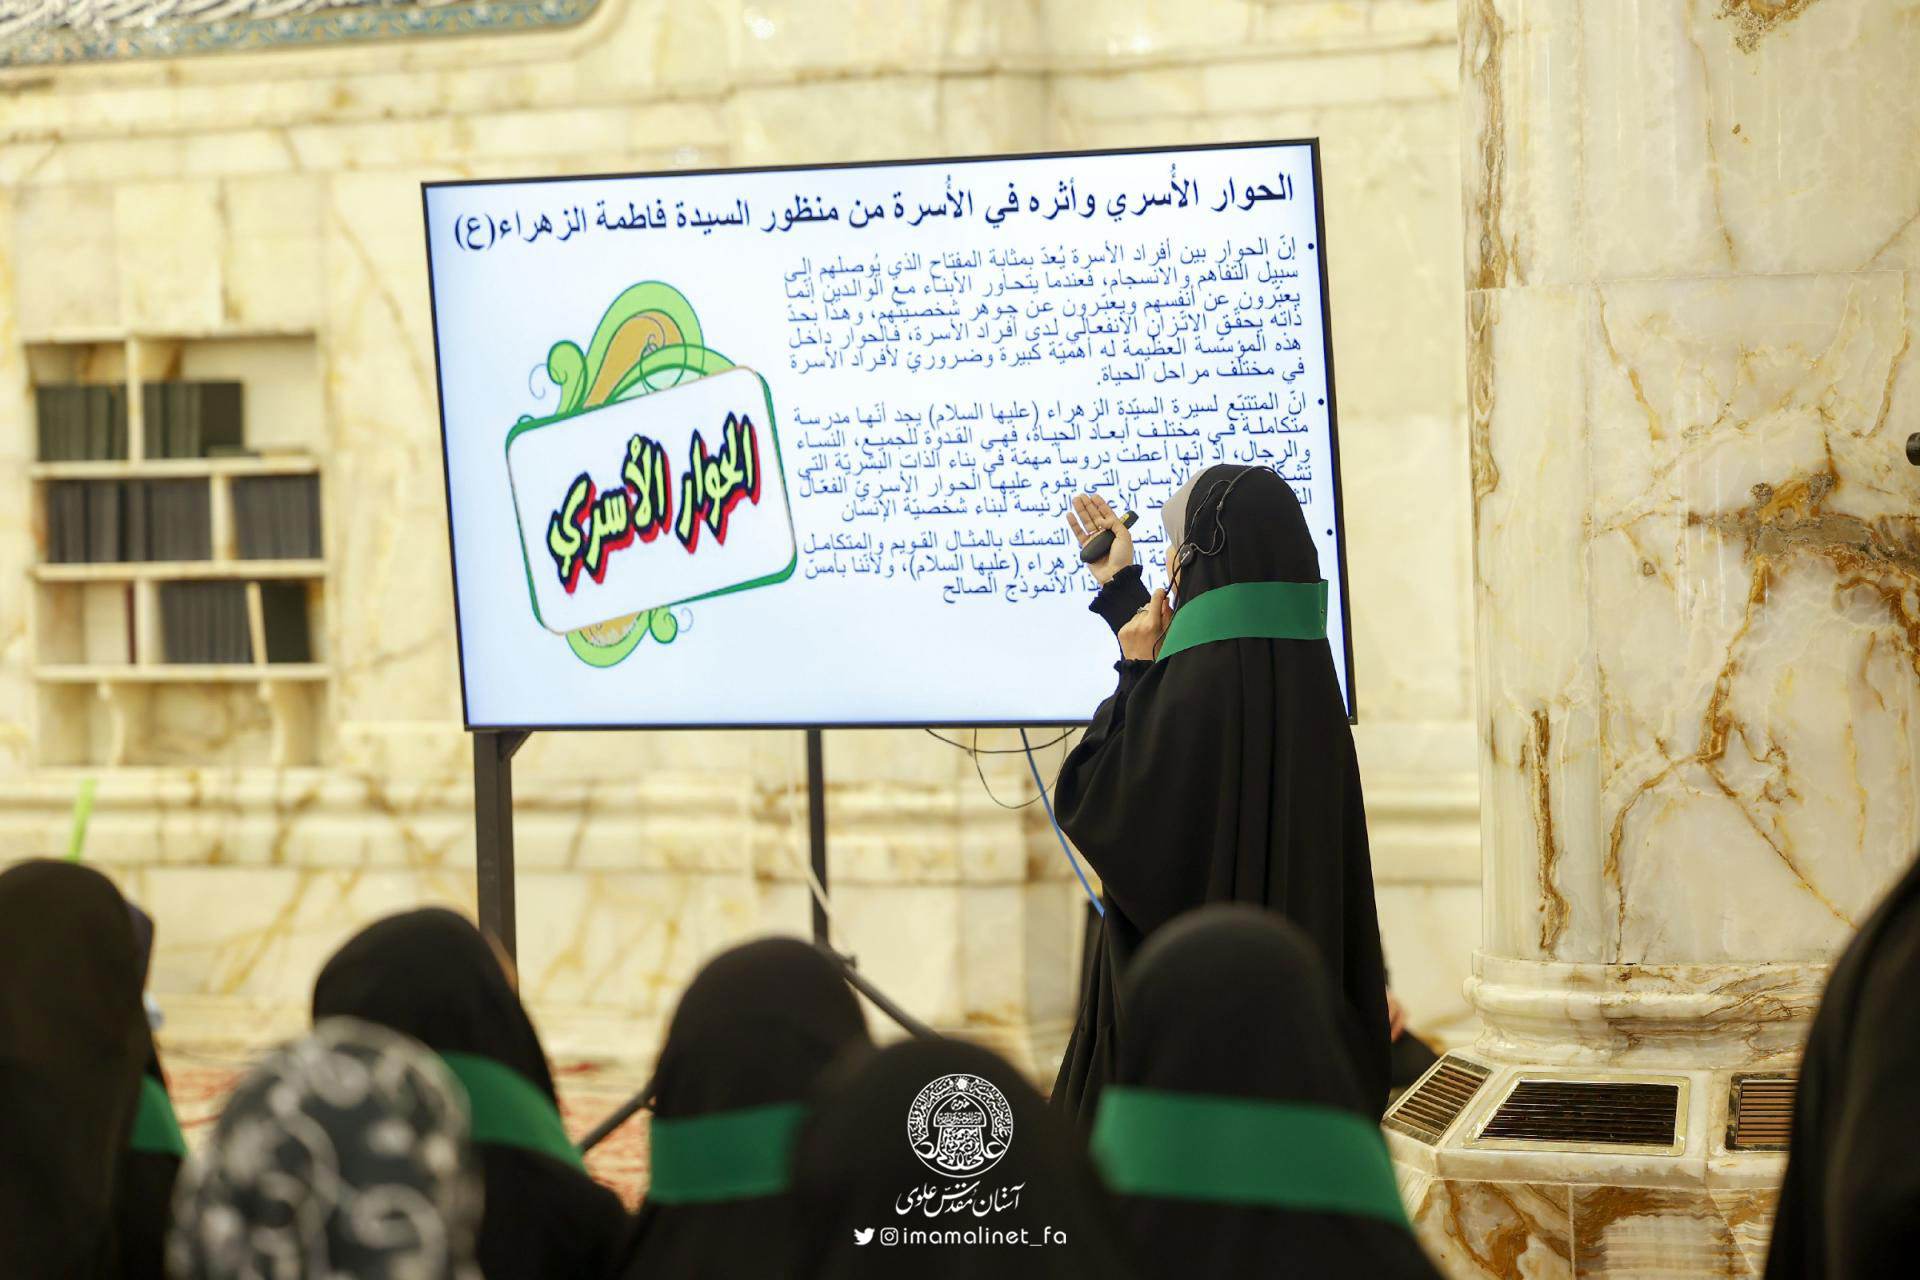 الحوار الأُسري وأثره في الأُسرة من منظور السيدة فاطمة الزهراء(ع)
• إنّ الحوار بين أفراد الأسرة يُعدّ بمثابة المفتاح الذي يُوصلهم إلى
سبيل التفاهم والانسجام، فعندما يتحاور الأبناء مع الوالدين إنّما
يعبّرون عن أنفسهم ويعبّرون عن جوهر شخصيتهم، وهذا بحدّ
ذاته يحقّق الاتّزان الانفعالي لدى أفراد الأسرة، فالحوار داخل
هذه المؤسّسة العظيمة له أهميّة كبيرة وضروريّ لأفراد الأسرة
في مختلف مراحل الحياة.
• انّ المتتبّع لسيرة السيّدة الزهراء (عليها السلام) يجد أنّها مدرسة
متكاملة في مختلف أبعاد الحياة، فهي القدوة للجميع، النساء
والرجال، إذ انّها أعطت دروساً مهمّة في بناء الذات البشريّة التي
الأساس التي يقوم عليها الحوار الأسريّ الفعّال
الرئيسة لبناء شخصيّة الإنسان
التمسّك بالمثال القويم والمتكامل
الزهراء (عليها السلام)، ولأننا بأمسّ
الأنموذج الصالح
الحوار الأسري
آستان مقدس علوی
imamalinet_fa